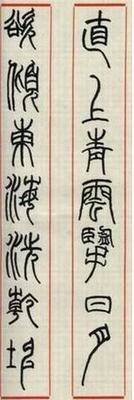 直上青雲擥日月
欲傾東海洗乾坤